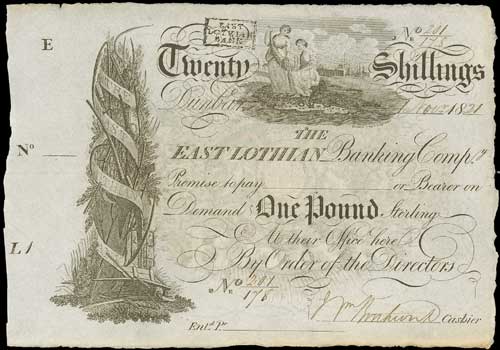 E
EAST
LOTHIAN
BANK
No 201/178
Twenty Shillings
Dunbar 1821
THE
No
EAST LOTHIAN Banking Compy
Promise to pay or Bearer on
Demand One Pound Sterling
At their Office here
By Order of the Directors
No 201/178
Entd. Pr. Cashier